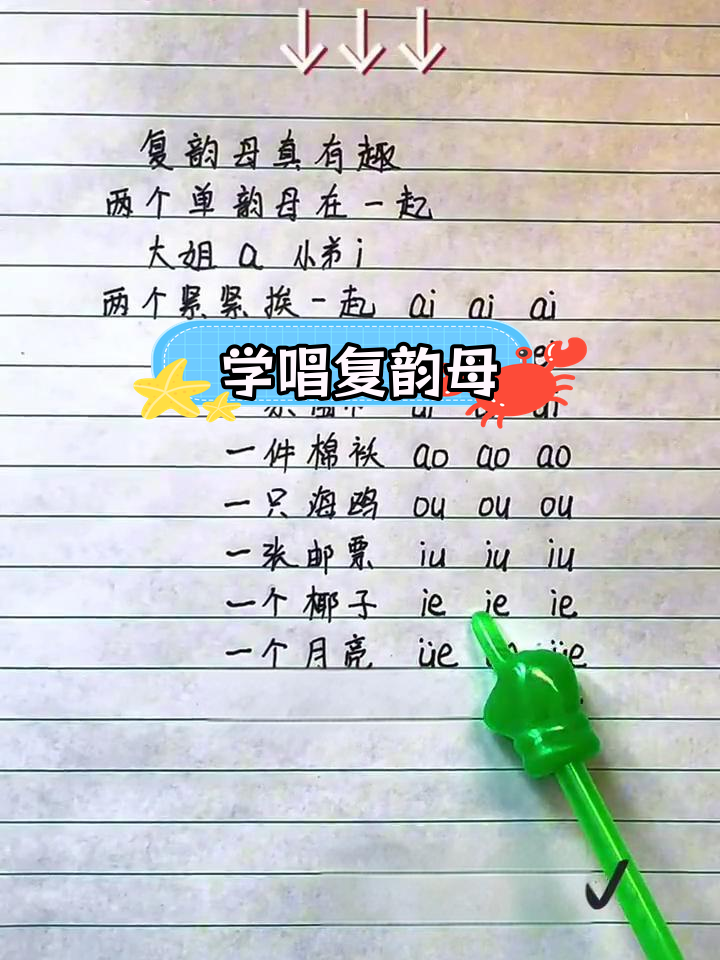 复韵母真有趣
两个单韵母在一起
大姐 a 小弟 i
两个紧紧挨一起 ai ai ai
学唱复韵母
一件棉袄 ao ao ao
一只海鸥 ou ou ou
一张邮票 iu iu iu
一个椰子 ie ie ie
一个月亮 üe üe